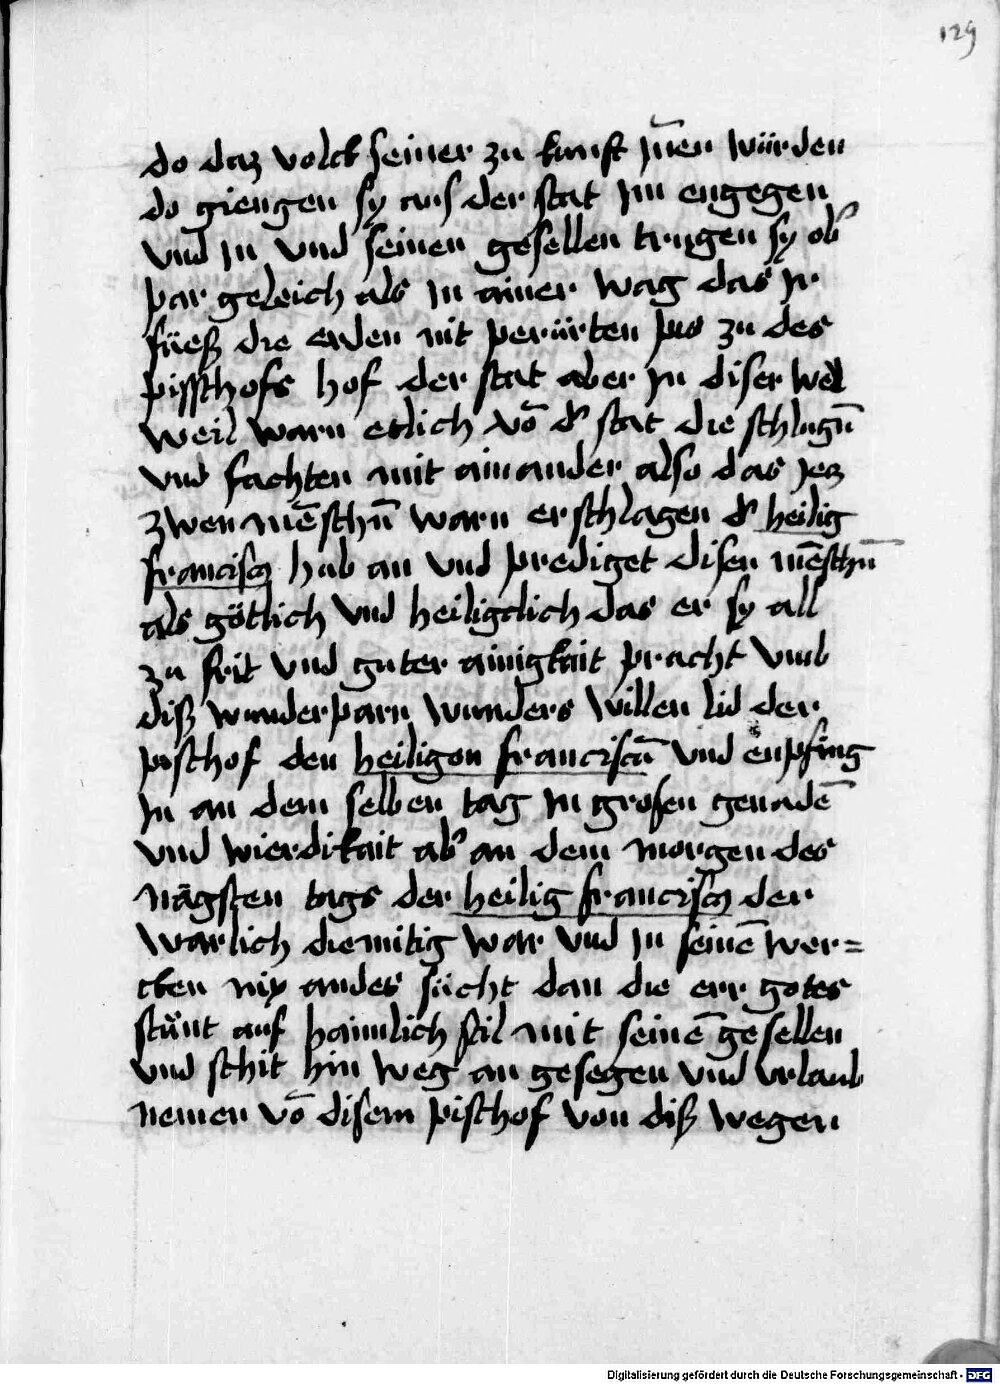 129
do daz volck seiner zu kunft jn̄en würden
do giengen sy aus der stat im engegen
vnd in vnd seinen gesellen trugen sy ob
par geleich als in ainer wag das ir
füeß die erden nit perürten pis zu des
pisschofs hof der stat aber in diser wel
weil warn etlich võ d' stat die schlugn̄
vnd fachten mit ainander also das jez
zwen mēschn̄ warn erschlagen d' heilig
franciscq hub an vnd prediget disen mēschn̄
als götlich vnd heiligclich das er sy all
zu frit vnd guter ainigkait pracht vmb
diß wunderparn wunders willen lid der
pischof den heiligen franciscū vnd enpfing
in an dem selben tag in grosen genadē
vnd wierdikait ab' an dem morgen des
nägsten tags der heilig franciscq der
warlich diemitig war vnd in seinē wer=
cken nix andes sücht dan die err gotes
stünt auf haimlich stil mit seinē gesellen
vnd schit hin weg an gesegen vnd vrlaub
nemen võ disem pischof von diß wegen
Digitalisierung gefördert durch die Deutsche Forschungsgemeinschaft - DFG